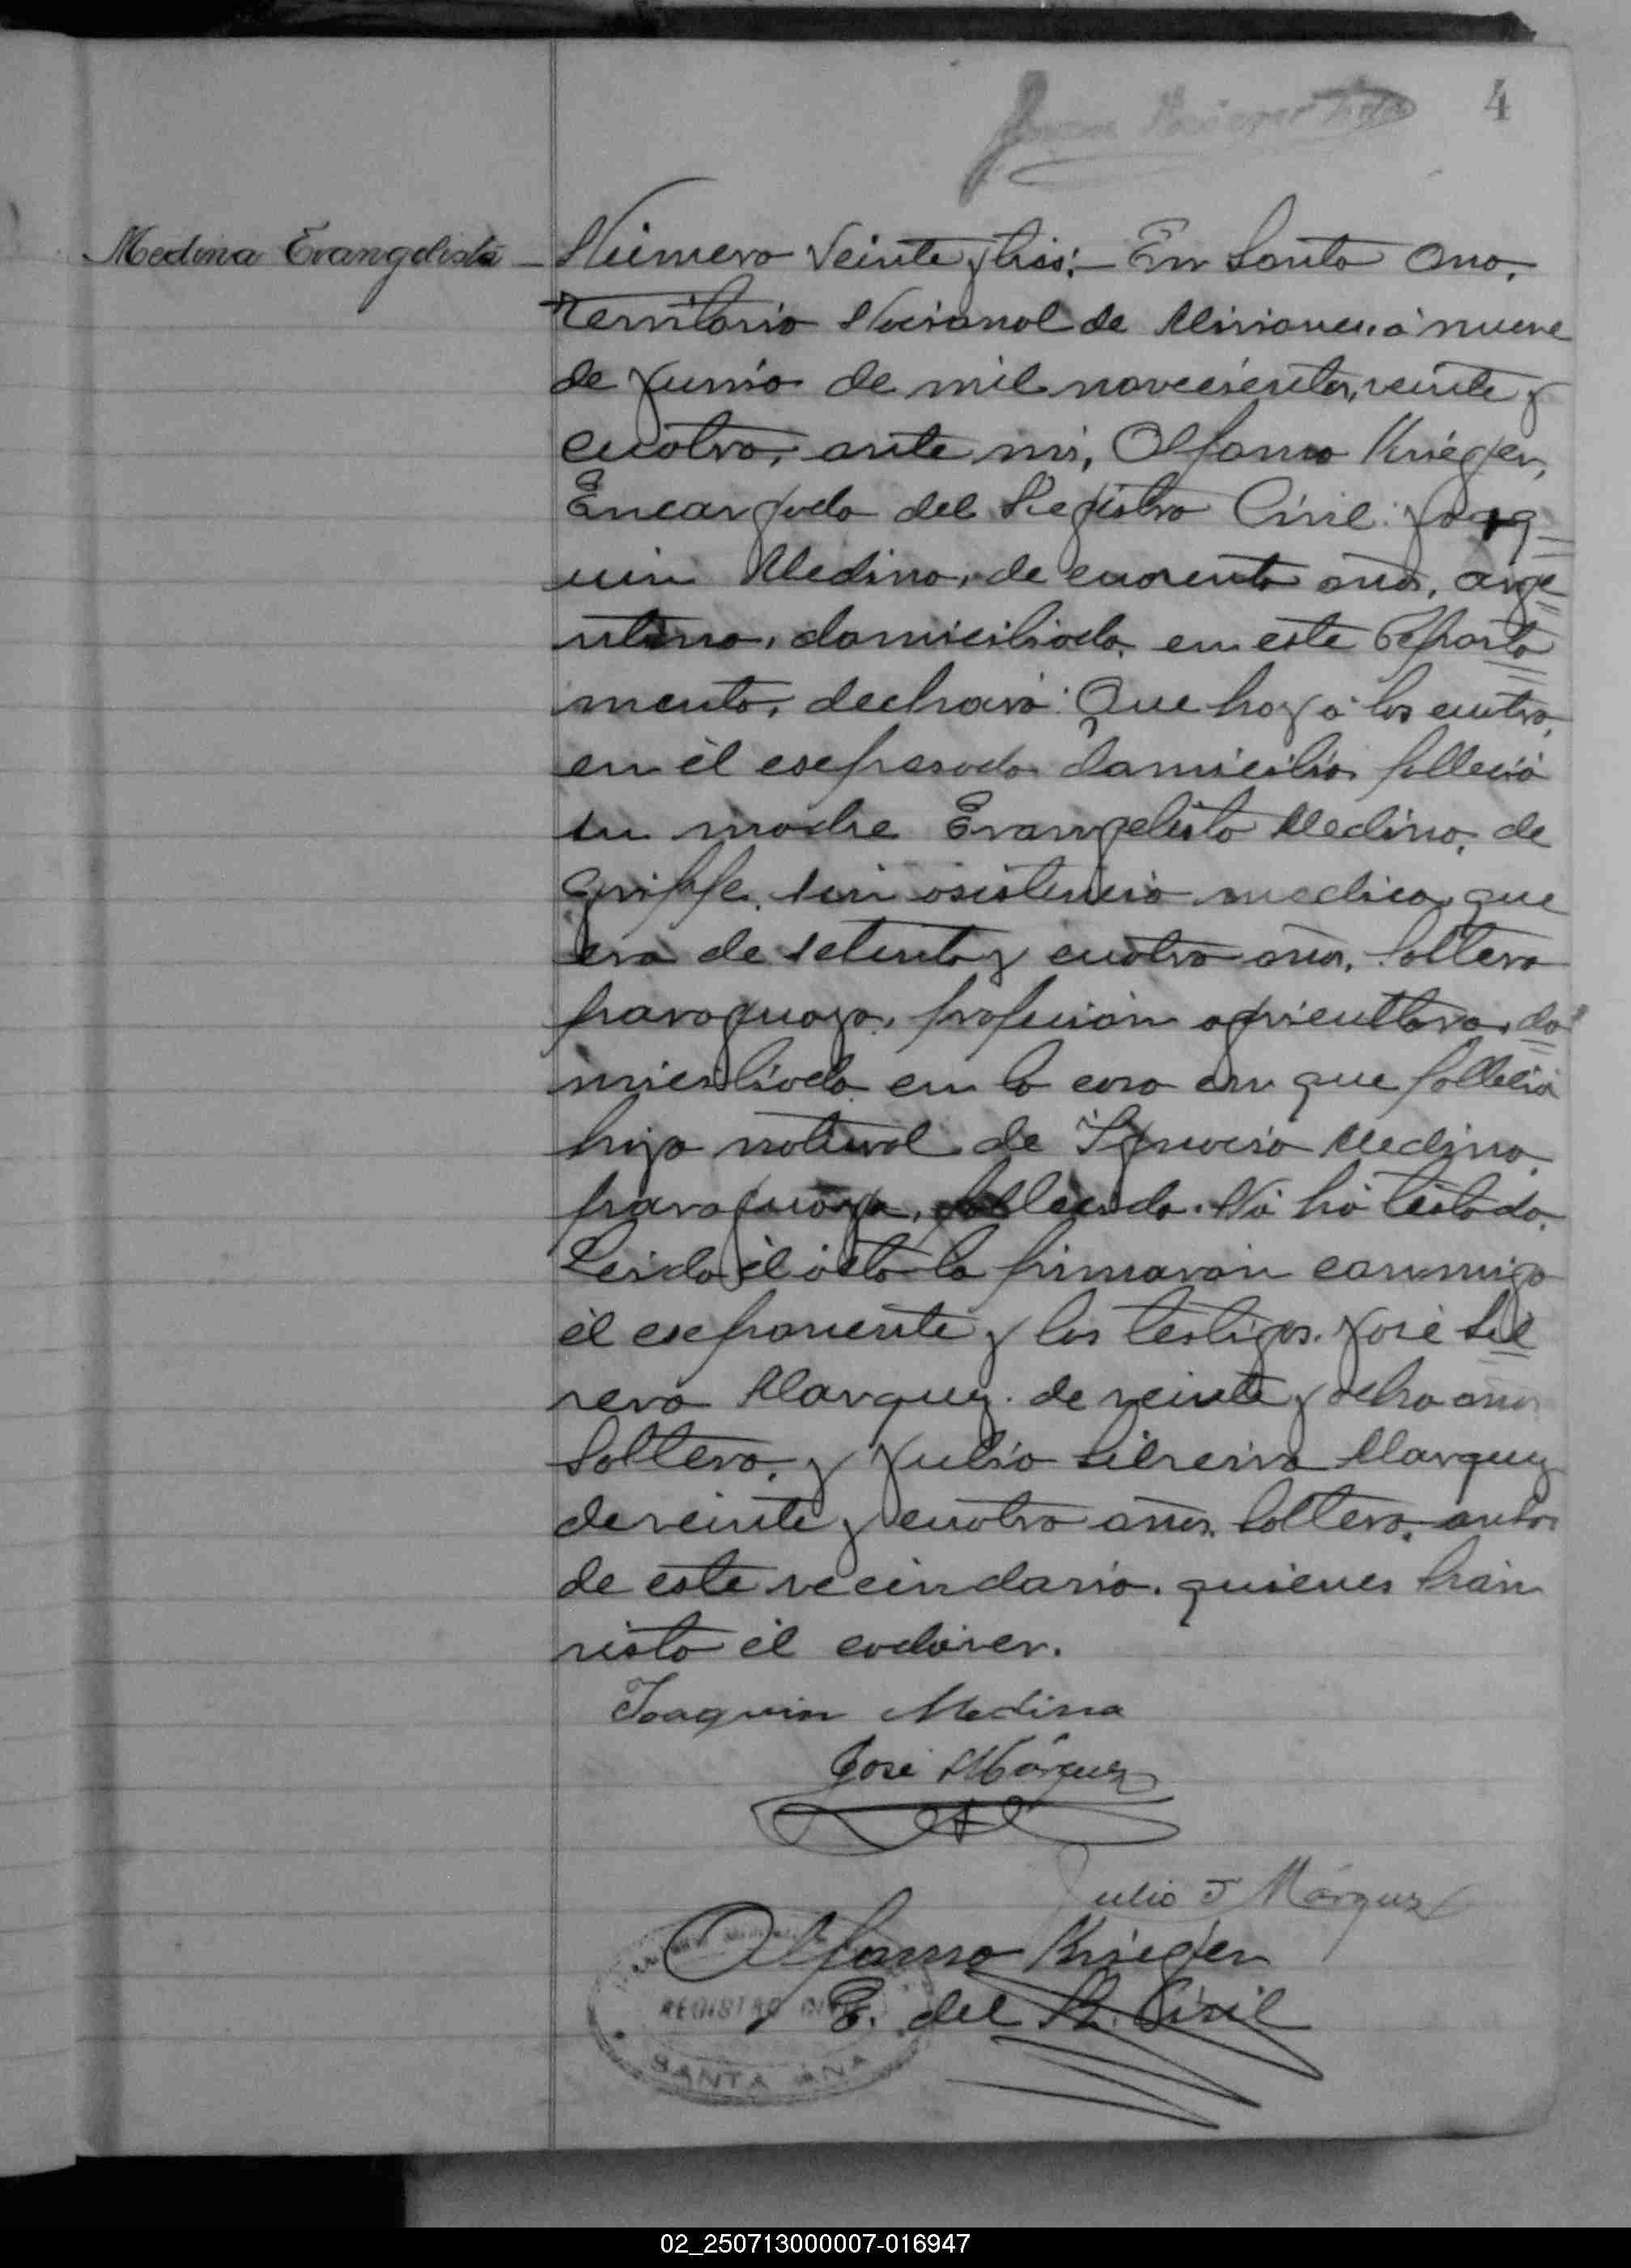 4
Medina Evangelista
Número veinte y tres:- En Santa Ana,
Territorio Nacional de Misiones, á nueve
de Junio de mil novecientos, veinte y
cuatro, ante mi, Alfonso Krieger,
Encargado del Registro Civil: Joaq
uin Medina, de cuarenta años, arge
ntino, domiciliado, en este Departa
mento, declaró: Que hoy á las cuatro,
en él expresado domicilio falleció
su madre Evangelista Medina, de
Grippe, sin asistencia medica, que
era de setenta y cuatro años, soltera
paraguaya, profesión agricultora, do
miciliada en la casa en que falleció
hija natural de Ignacia Medina,
paraguaya, fallecida. No há testado.
Leida él acta la firmarón conmigo
él exponente y los testigos. José Sil
vera Marquez de veinte y ocho años
Soltero, y Julio Silveira Marquez
de veinte y cuatro años, soltero, ambos
de este vecindario, quienes hán
visto él cadáver.
Joaquin Medina
José Márquez
Julio S Márquez
Alfonso Krieger
E. del R. Civil
REGISTRO CIVIL
SANTA ANA
02_250713000007-016947